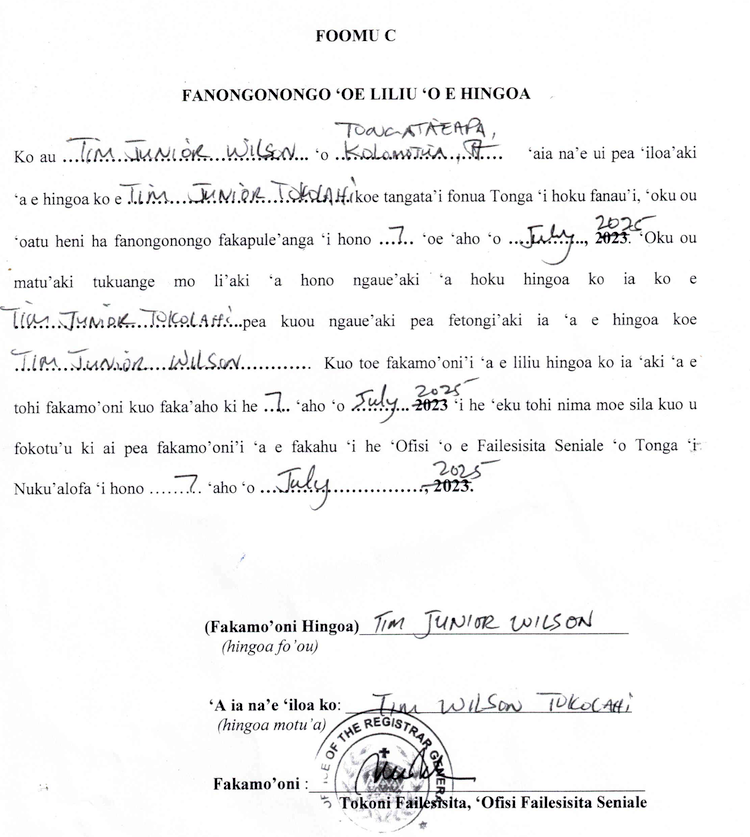 FOOMU C
FANONGONONGO ‘OE LILIU ‘O E HINGOA
TONGATAEAPA,
Ko au ...TIM JUNIOR WILSON... ‘o KOLOMOTUA, .... ‘aia na’e ui pea ‘iloa’aki
‘a e hingoa ko e TIM JUNIOR TOKOLAHI koe tangata’i fonua Tonga ‘i hoku fanau’i, ‘oku ou
2025
‘oatu heni ha fanongonongo fakapule’anga ‘i hono ...7.. ‘oe ‘aho ‘o ....July...., 2023. ‘Oku ou
matu’aki tukuange mo li’aki ‘a hono ngaue’aki ‘a hoku hingoa ko ia ko e
TIM JUNIOR TOKOLAHI..pea kuou ngaue’aki pea fetongi’aki ia ‘a e hingoa koe
TIM JUNIOR WILSON............ Kuo toe fakamo’oni’i ‘a e liliu hingoa ko ia ‘aki ‘a e
2025
tohi fakamo’oni kuo faka’aho ki he ..7.. ‘aho ‘o July... 2023 ‘i he ‘eku tohi nima moe sila kuo u
fokotu’u ki ai pea fakamo’oni’i ‘a e fakahu ‘i he ‘Ofisi ‘o e Failesisita Seniale ‘o Tonga ‘i
2025
Nuku’alofa ‘i hono ......7.. ‘aho ‘o ....July......................, 2023.
(Fakamo’oni Hingoa) TIM JUNIOR WILSON
(hingoa fo’ou)
‘A ia na’e ‘iloa ko: TIM WILSON TOKOLAHI
(hingoa motu’a)
OFFICE OF THE REGISTRAR GENERAL
Fakamo’oni :
Tokoni Failesisita, ‘Ofisi Failesisita Seniale